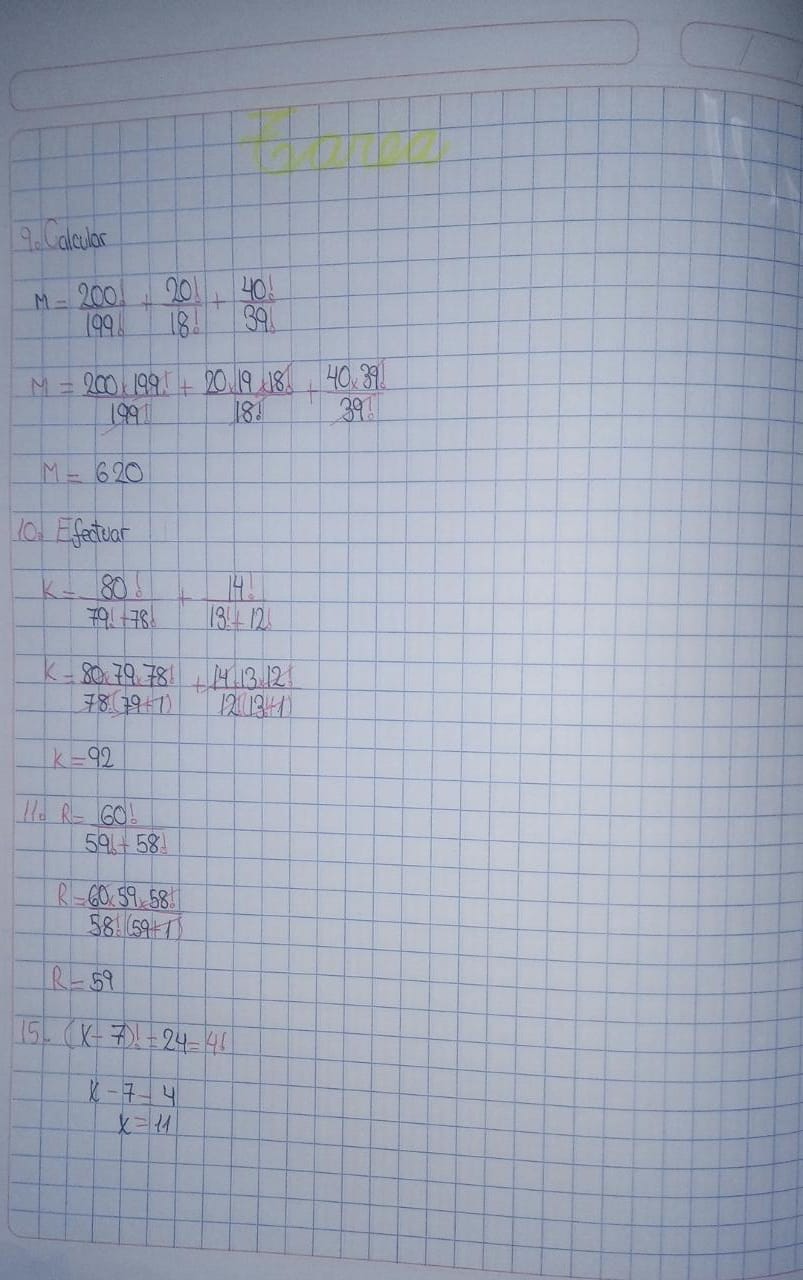 Tarea
9. Calcular
M = 200!/199! + 20!/18! + 40!/39!
M = 200x199!/199! + 20x19x18!/18! + 40x39!/39!
M = 620
10. Efectuar
K = 80!/79!+78! + 14!/13!+12!
K = 80x79x78!/78!(79+1) + 14x13x12!/12!(13+1)
K = 92
11. R = 60!/59!+58!
R = 60x59x58!/58!(59+1)
R = 59
15. (x-7)! = 24 = 4!
x - 7 = 4
x = 11